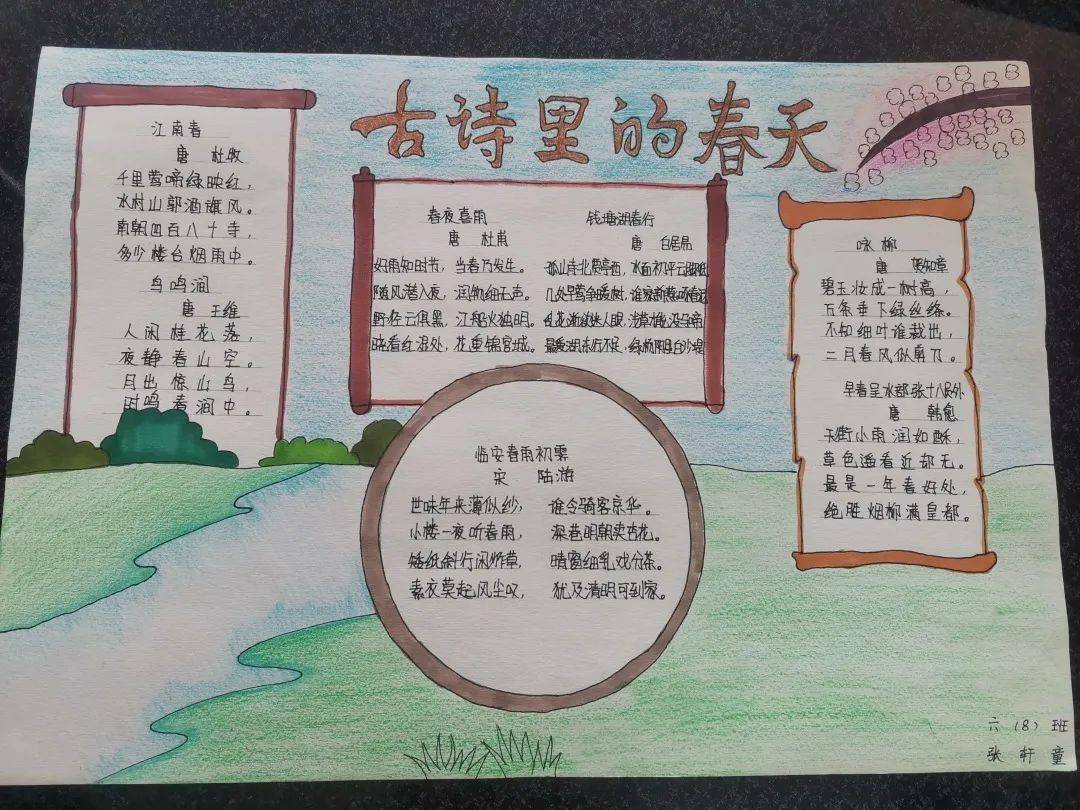 古诗里的春天
江南春
唐 杜牧
千里莺啼绿映红，
水村山郭酒旗风。
南朝四百八十寺，
多少楼台烟雨中。
鸟鸣涧
唐 王维
人闲桂花落，
夜静春山空。
月出惊山鸟，
时鸣春涧中。
春夜喜雨
唐 杜甫
好雨知时节，当春乃发生。
随风潜入夜，润物细无声。
野径云俱黑，江船火独明。
晓看红湿处，花重锦官城。
钱塘湖春行
唐 白居易
孤山寺北贾亭西，水面初平云脚低
几处早莺争暖树，谁家新燕啄春泥
乱花渐欲迷人眼，浅草才能没马蹄
最爱湖东行不足，绿杨阴里白沙堤
临安春雨初霁
宋 陆游
世味年来薄似纱，谁令骑客京华。
小楼一夜听春雨，深巷明朝卖杏花。
矮纸斜行闲作草，晴窗细乳戏分茶。
素衣莫起风尘叹，犹及清明可到家。
咏柳
唐 贺知章
碧玉妆成一树高，
万条垂下绿丝绦。
不知细叶谁裁出，
二月春风似剪刀。
早春呈水部张十八员外
唐 韩愈
天街小雨润如酥，
草色遥看近却无。
最是一年春好处，
绝胜烟柳满皇都。
六（8）班
张轩童